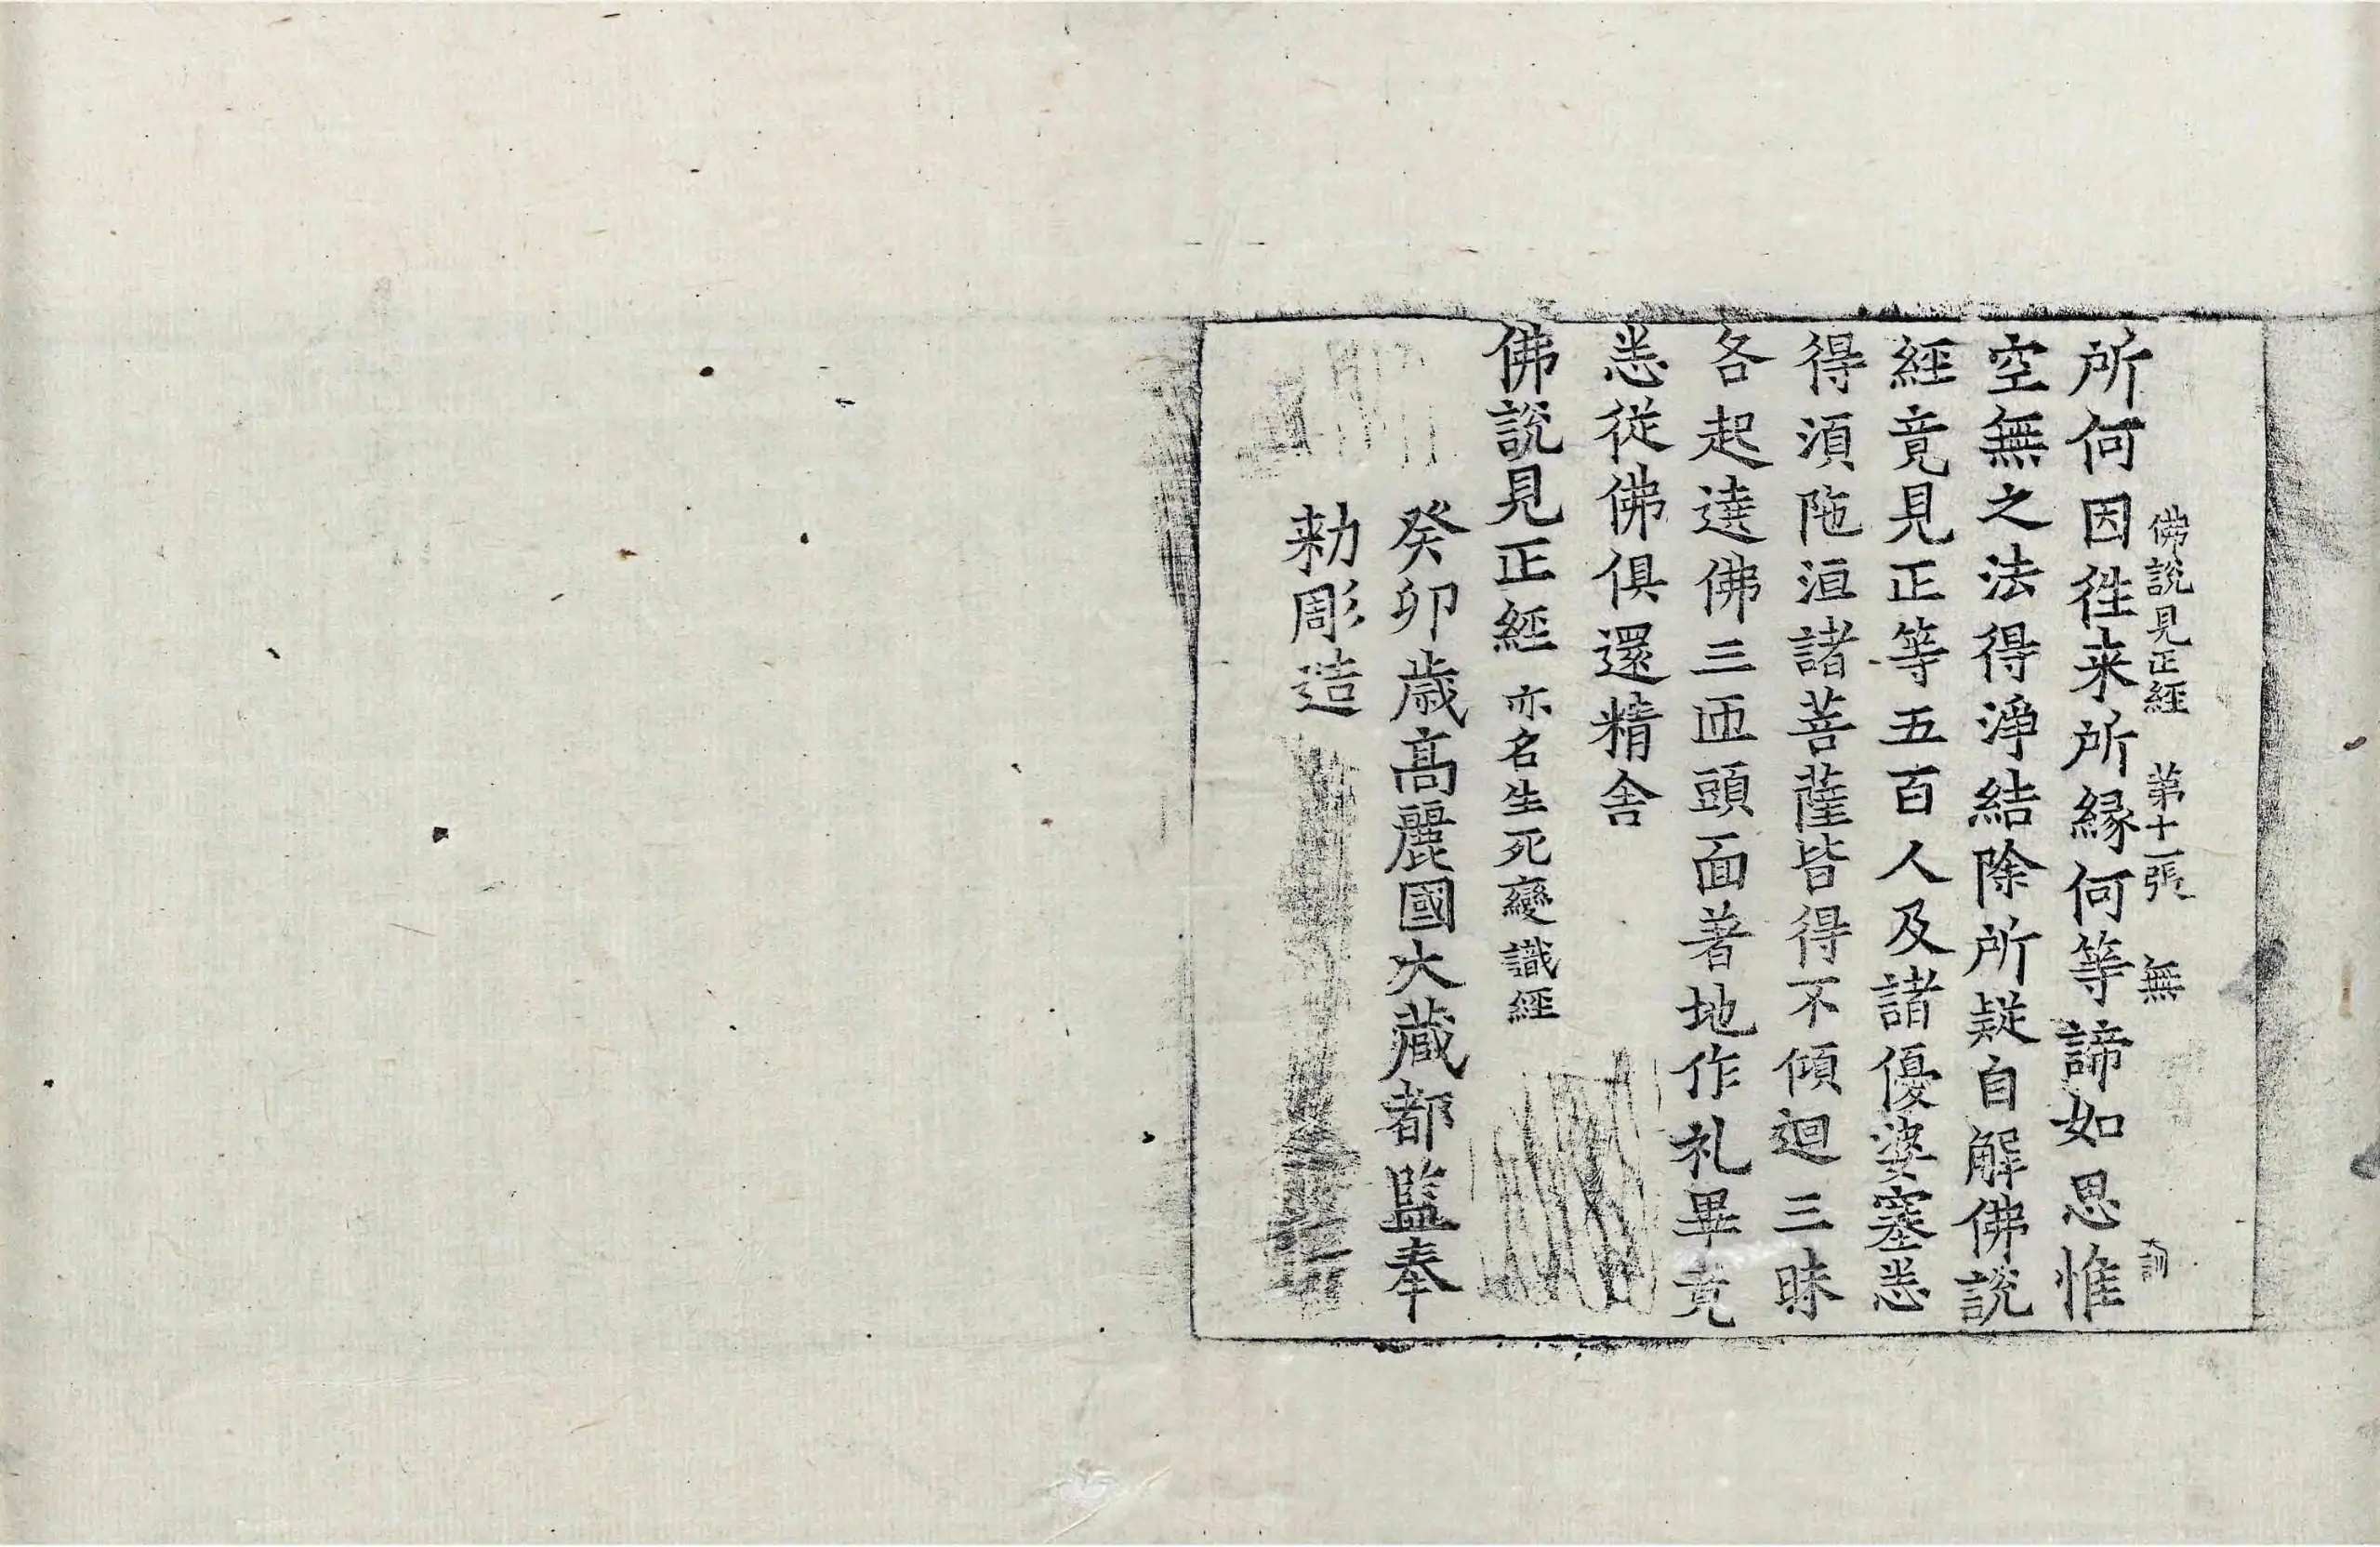 佛說見正經 第十一張 無 大訓
所何因徃来所縁何等諦如思惟
空無之法得淨結除所疑自解佛說
經竟見正等五百人及諸優婆塞悉
得湏陁洹諸菩薩皆得不傾迴三昧
各起遶佛三匝頭面著地作礼畢竟
悉從佛俱還精舍
佛說見正經 亦名生死變識經
癸卯歳髙麗國大藏都監奉
勑彫造